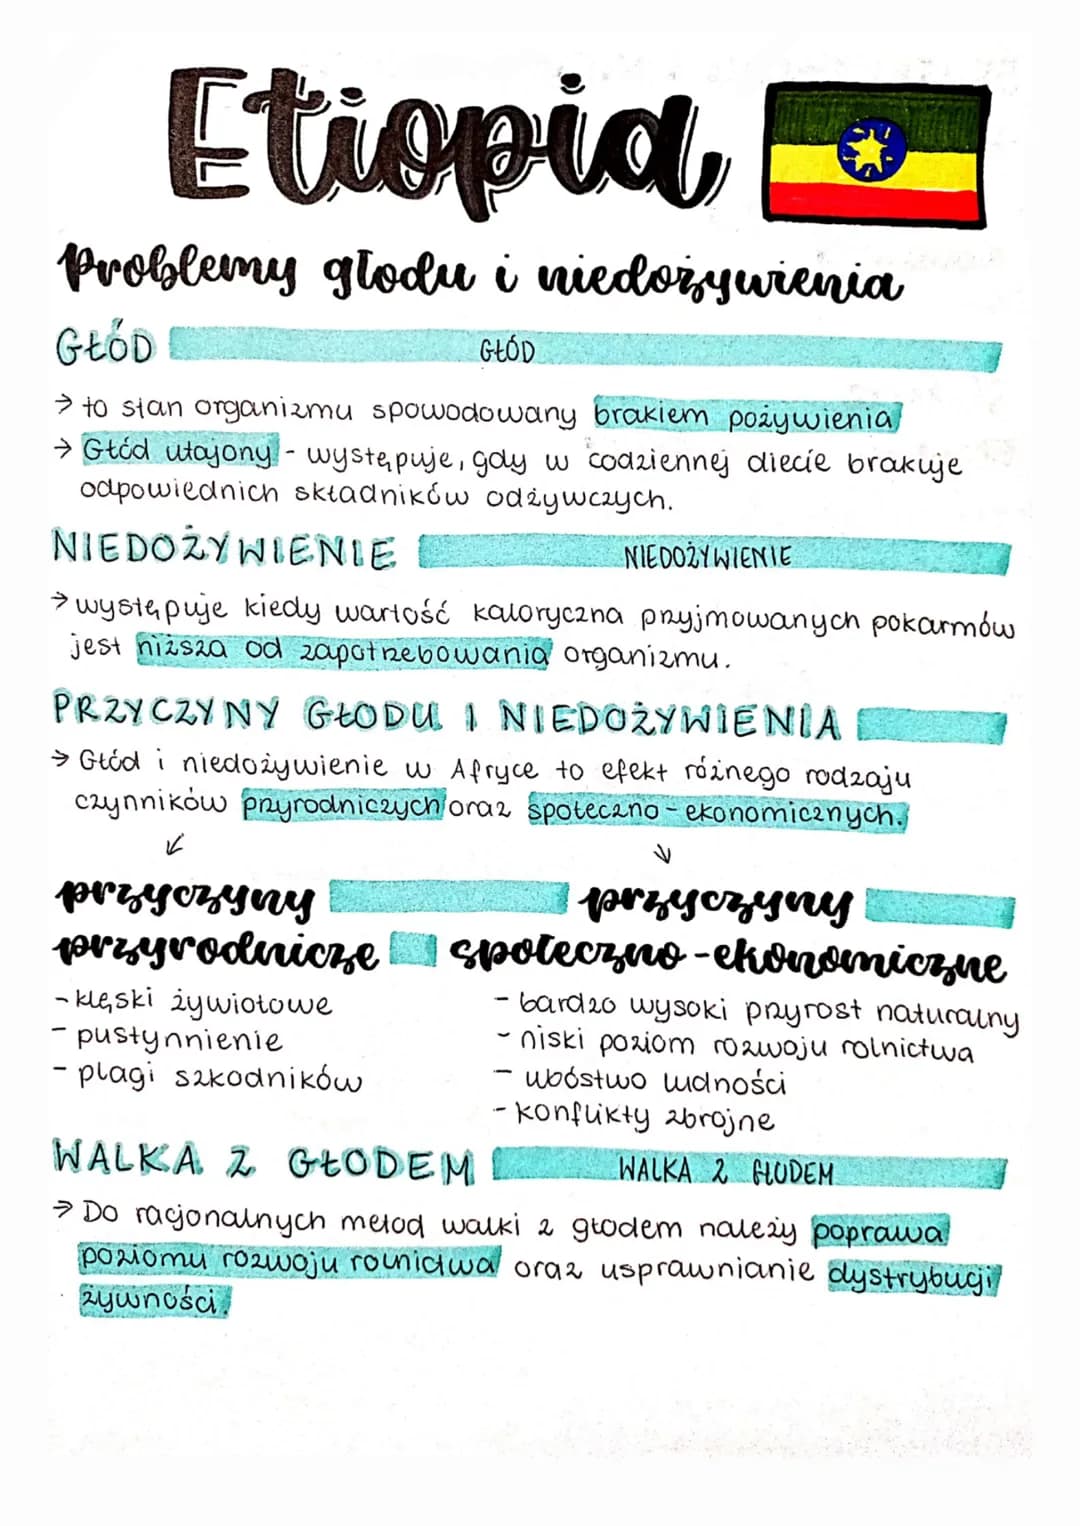 Etiopia
Problemy głodu i niedożywienia
GŁÓD GŁÓD
→ to stan organizmu spowodowany brakiem pożywienia
→ Głód utajony - występuje, gdy w codziennej diecie brakuje
odpowiednich składników odżywczych.
NIEDOŻYWIENIE NIEDOŻYWIENIE
→ występuje kiedy wartość kaloryczna przyjmowanych pokarmów
jest niższa od zapotrzebowania organizmu.
PRZYCZYNY GŁODU I NIEDOŻYWIENIA
→ Głód i niedożywienie w Afryce to efekt różnego rodzaju
czynników przyrodniczych oraz społeczno-ekonomicznych.
przyczyny
przyrodnicze
- klęski żywiołowe
- pustynnienie
- plagi szkodników
przyczyny
społeczno-ekonomiczne
- bardzo wysoki przyrost naturalny
- niski poziom rozwoju rolnictwa
- ubóstwo ludności
- konflikty zbrojne
WALKA Z GŁODEM WALKA Z GŁODEM
→ Do racjonalnych metod walki z głodem należy poprawa
poziomu rozwoju rolnictwa oraz usprawnianie dystrybucji
żywności.